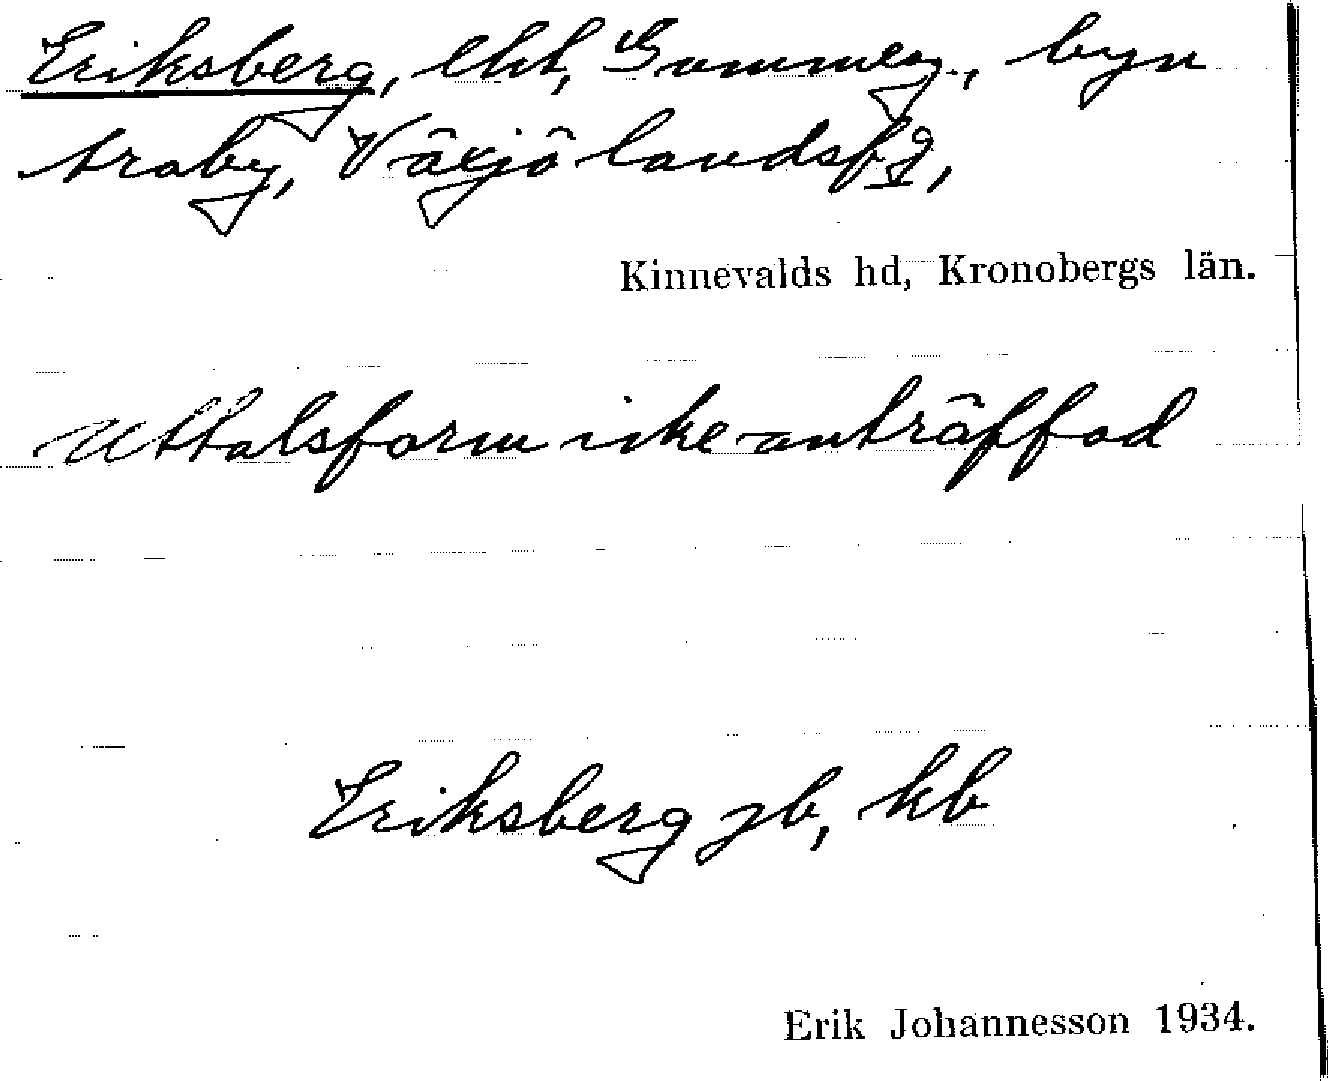 Eriksberg, lht, Gummeg., byn
Araby, Växjö landsfg,
Kinnevalds hd, Kronobergs län.
Uttalsform icke anträffad
Eriksberg jb, kb
Erik Johannesson 1934.